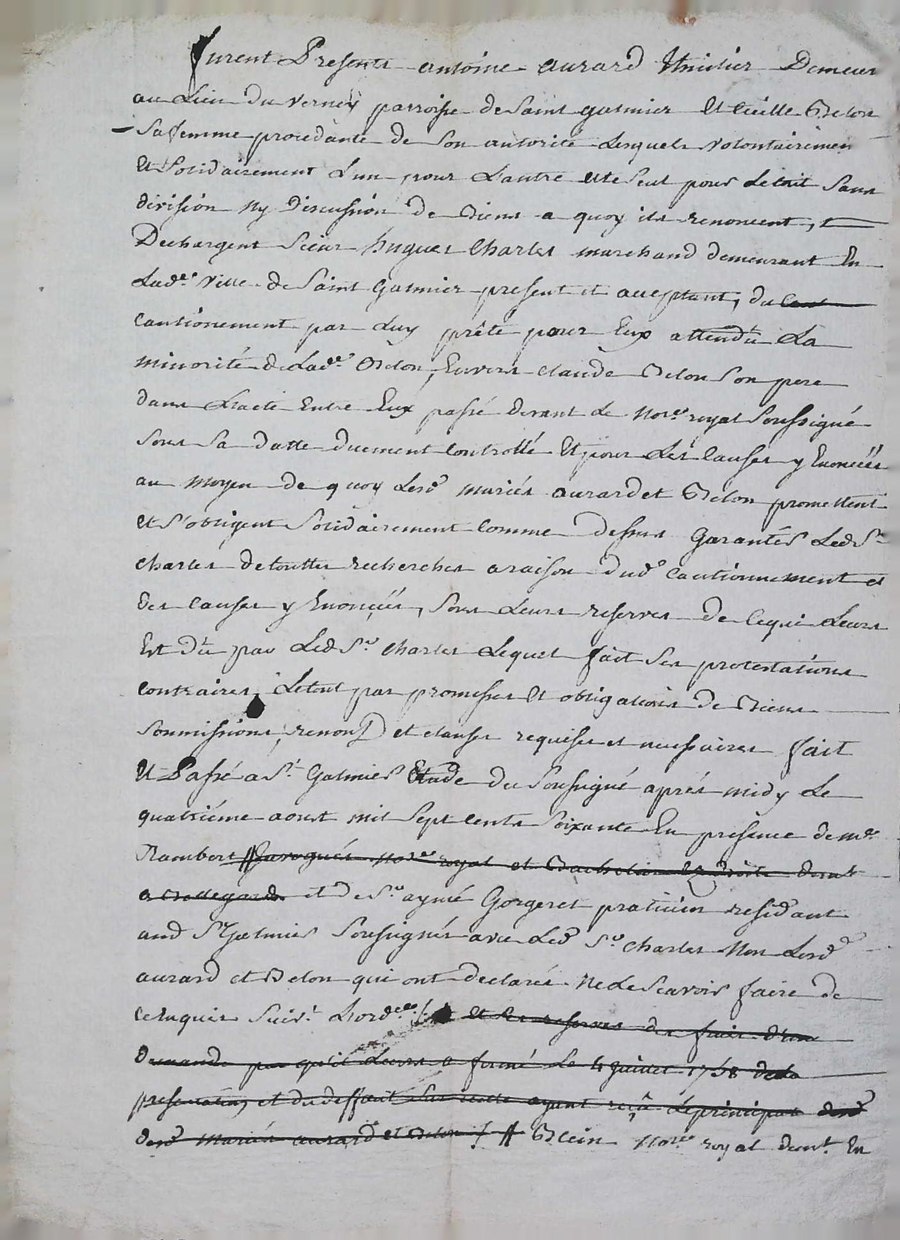 furent Presents antoine aurard Demeur
au Lieu du verney parroisse de Saint galmier Et Belon
Sa femme procedante de Son autorité Lesquels volontairemen
Et Solidairement L'un pour L'autre Seul pour Letout Sans
division Ny Discussion de Biens a quoy ils renoncent,
Dechargent Sieur hugues Charles marchand demeurant En
Lad.e ville de Saint Galmier present et aceptant, du
cautionement par Luy prêté pour Eux attendu La
minorité de Lad.e Belon, Envers claude Belon Son pere
dans L'acte Entre Eux passé devant Le No.re royal Soussigné
Sous Sa datte duement Controllé Et pour Les Causes y Enoncéés
au moyen de quoy Lesd. mariés aurard et Belon promettent
Et S'obligent Solidairement Comme dessus Garantir Led S.r
Charles de touttes recherches a raison dud. Cautionnement et
des Causes y Enoncées, Sous Leurs reserves de Cequi Leurs
Est dû par Led S.r Charles Lequel fait Ses protestations
contraires, Letout par promesses Et obligations de Biens
Soumissions, renon.) et clauses requises et necessaires fait
Et Passé a S.t Galmier Etude du Soussigné aprés midy Le
quatriéme aoust mil Sept cents Soixante En presence de m.e
Rambert royal et
et de S.r aymé Gorgeret praticien residant
aud S.t Galmier Soussignés avec Led S.r Charles Non Lesd.
aurard et Belon qui ont declarés Ne Le Scavoir faire de
ce Enquis Suiv.t L'ord.ce et Ses reserves des frais d'un
Demande Leurs a formé Le 4 1758 de la
presentation, et du deffaut Sur ayant reçû Le principal
desd. mariés aurard et Belon Blein No.re royal dem.t En